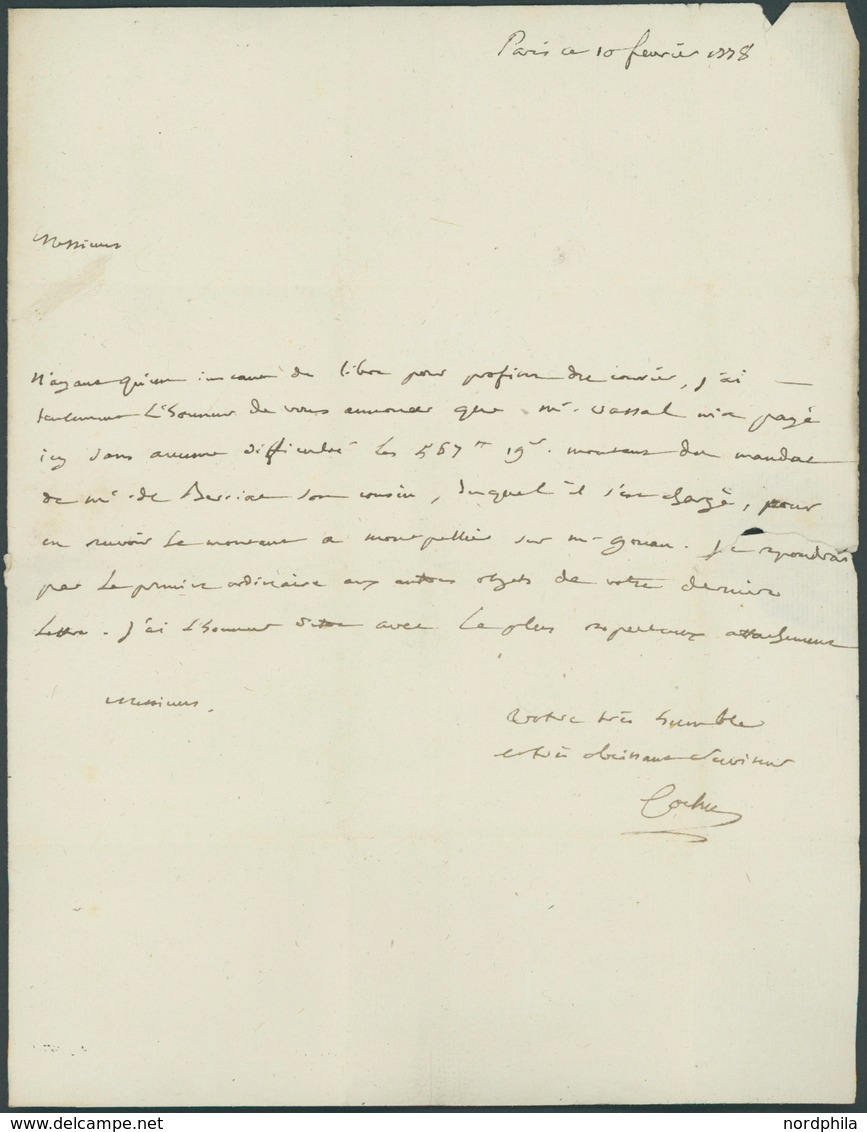 Paris ce 10 fevrier 1778
Messieurs
N'ayant qu'un instant de libre pour profiter du courier, j'ai
seulement L'honneur de vous annoncer que mr. Vassal m'a payé
icy sans aucune difficulté les 567 tt 19 s. montant du mandat
de mr. de Berriac son cousin, duquel il s'est chargé, pour
en recevoir le montant a montpellier sur mr gouan. Je repondrai
par le premier ordinaire aux autres objets de votre derniere
Lettre. J'ai L'honneur d'etre avec le plus respectueux attachement
Messieurs.
Votre très humble
et très obeissant Serviteur
Cochu
nordphila